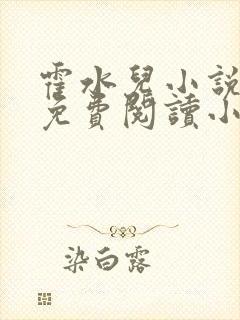 霍水兒小說
免費閱讀小
染白露